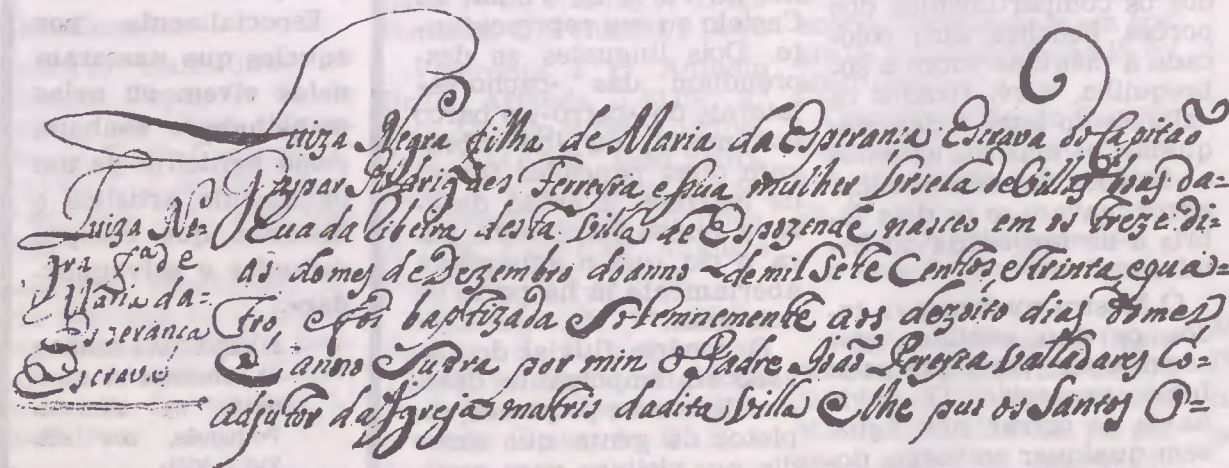 Luiza Negra filha de Maria da Esperança Escrava do Capitaõ
Gaspar Rodrigues Ferreyra e sua mulher Ursela de Villas boas da
Rua da Ribeira desta Villa de Espozende nasceo em os treze di=
as do mes de Dezembro do anno de mil Sete Centos e trinta, e qua=
tro, e foi baptizada Solemnemente aos dezoito dias do mes
e anno Supra por min o Padre Joaõ Pereyra Valladares Co=
adjutor da Igreja matris da dita Villa e lhe pus os Santos O=
Luiza Ne=
gra fª de
Maria da=
Esperança
Escrava